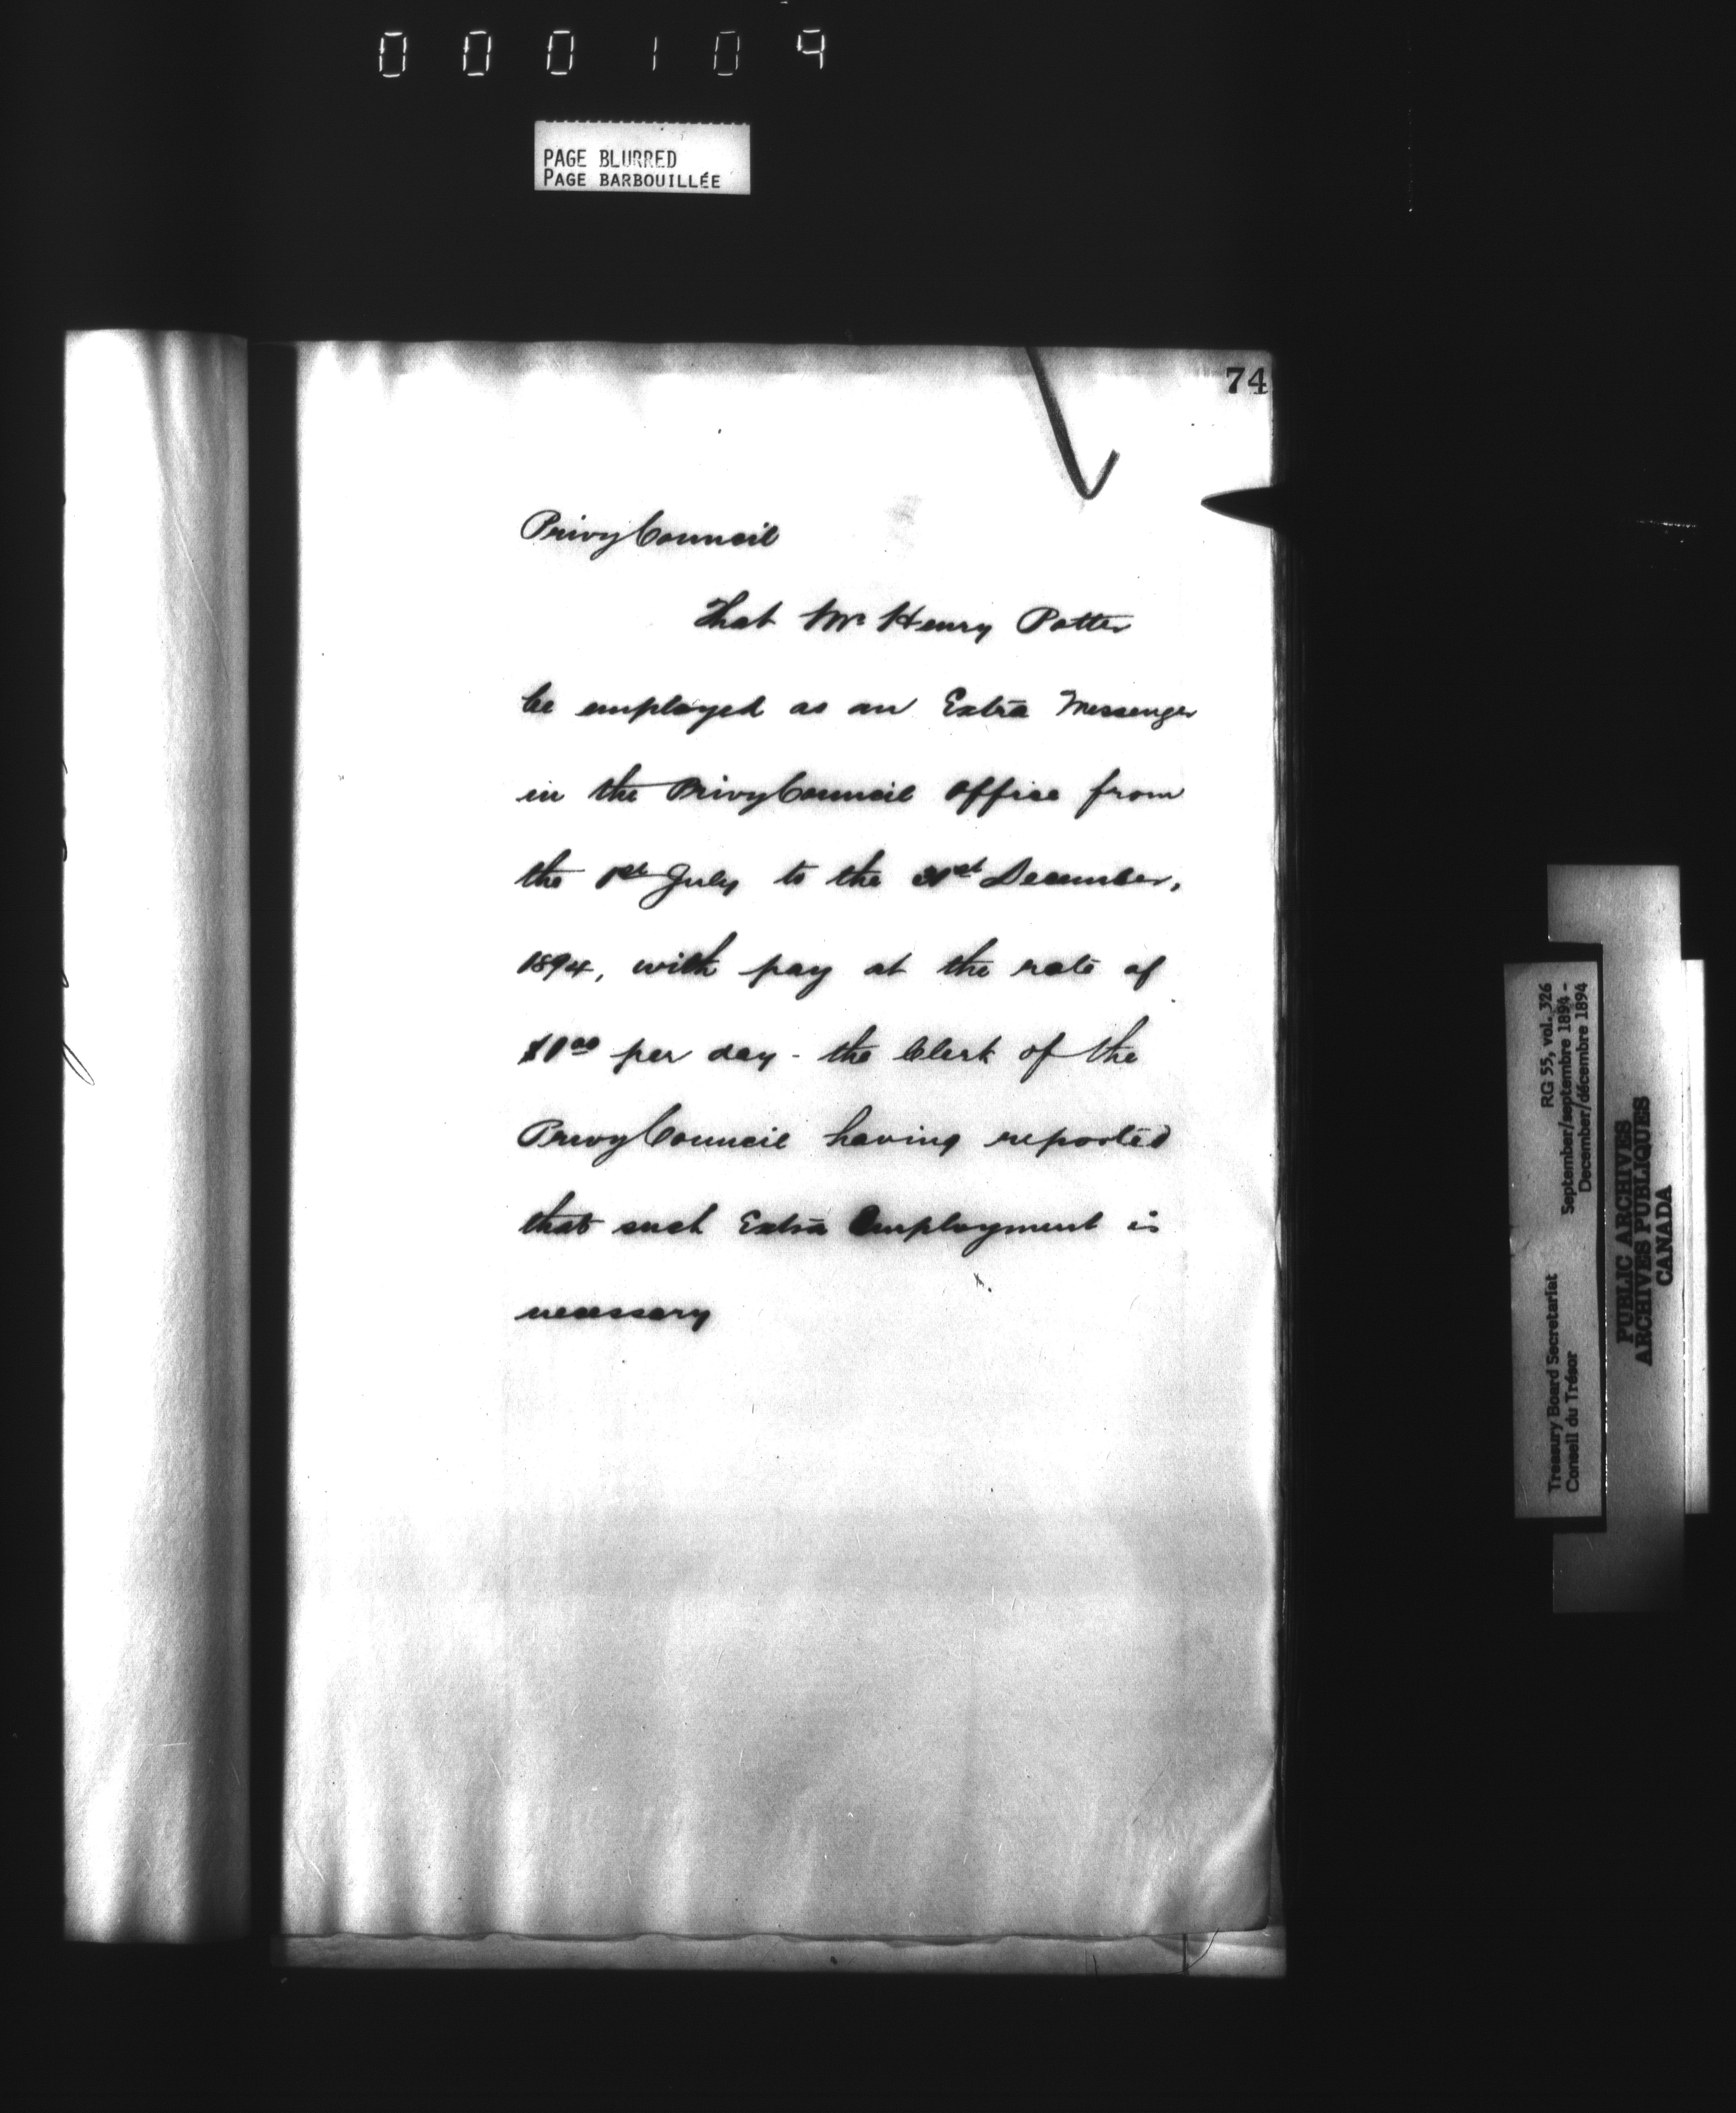 000109
PAGE BLURRED
PAGE BARBOUILLÉE
74
Privy Council
That Mr Henry Potter
be employed as an Extra Messenger
in the Privy Council Office from
the 1st July to the 31st December,
1894, with pay at the rate of
$1.00 per day - the Clerk of the
Privy Council having reported
that such Extra Employment is
necessary
Treasury Board Secretariat RG 55, vol. 326
Conseil du Trésor September/septembre 1894 -
December/décembre 1894
PUBLIC ARCHIVES
ARCHIVES PUBLIQUES
CANADA